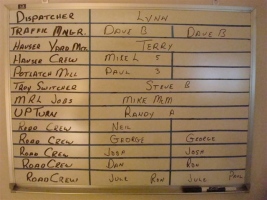 DISPATCHER LYNN
TRAFFIC MNGR. DAVE B DAVE B
HAUSER YARD MGR. TERRY
HAUSER CREW MIKE L 5
POTLATCH MILL PAUL 3
TROY SWITCHER STEVE B
MRL JOBS MIKE McM
UPTURN RANDY A
ROAD CREW NEIL
ROAD CREW GEORGE GEORGE
ROAD CREW JOSH JOSH
ROAD CREW DAN RON
ROAD CREW JULE RON JULE PAUL